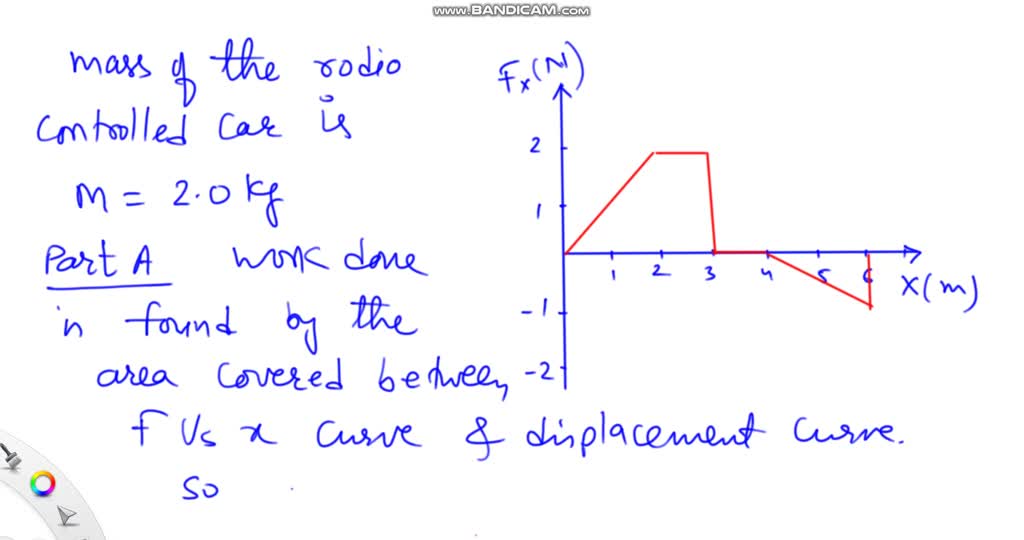 www.BANDICAM.com
mass of the rodio
Controlled Car is
m = 2.0 kg
Part A work done
in found by the
area covered between
F Vs x curve & displacement curve.
so
Fx(N)
2
1
-1
-2
1 2 3 4 5 6
X(m)